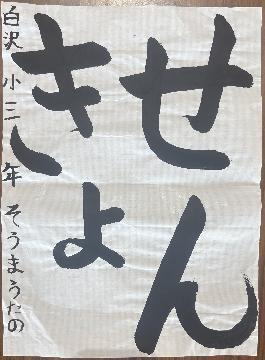 せん
きょ
白沢小三年そうまうたの